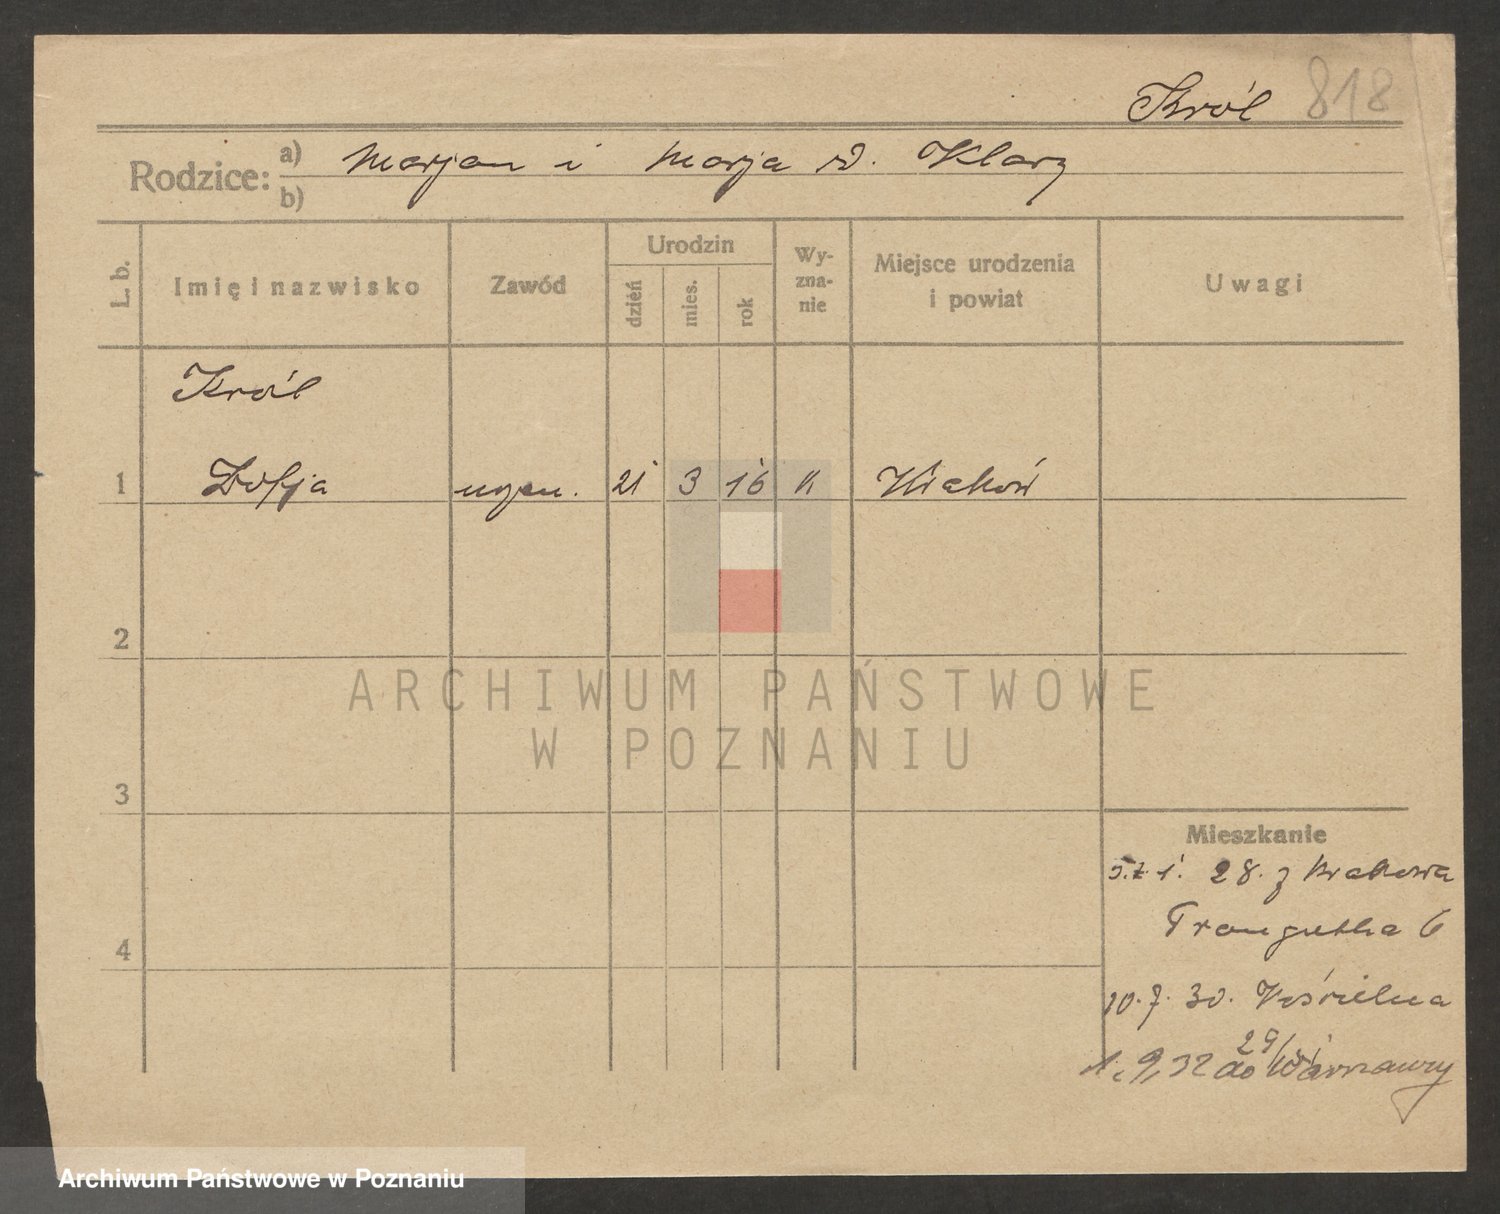 Król 818
Rodzice: a) Marjan i Marja d. Klarz
b)
L. b.
Imię i nazwisko
Zawód
Urodzin
dzień
mies.
rok
Wy-
zna-
nie
Miejsce urodzenia
i powiat
Uwagi
Król
1 Zofja uczen. 21 3 16 k Kraków
2
3
4
Mieszkanie
28. z Krakowa
Traugutta 6
10.7.30. Kościelna
29/
1.9.32 do Warszawy
ARCHIWUM PAŃSTWOWE
W POZNANIU
Archiwum Państwowe w Poznaniu